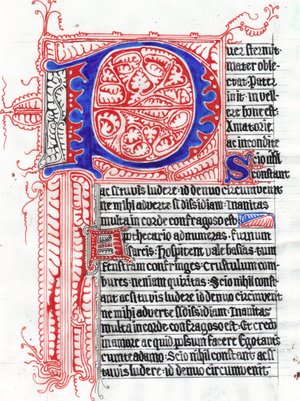 Puer stertit
mater obse
crat. Pater
init in vell
ere bone est
Amatorie
ac incondite
Scio nihil
constant
ac si vis ludere id denuo circumvent
ne mihi adverte si dissidiam Inanitas
multa in corde confragos est
Apothecario adnumeras furnum
farcis. Hospitem vale hassas tum
fenstram confringes Crustulum com
bures
Scio nihil const
ant ac si vis ludere id denuo circumvent
ne mihi adverte si dissidiam. Inanitas
multa in corde confragoso est. Et cred
in amore ac quid possum facere
Scio nihil constant ac si
tu vis ludere id denuo circumvenit.